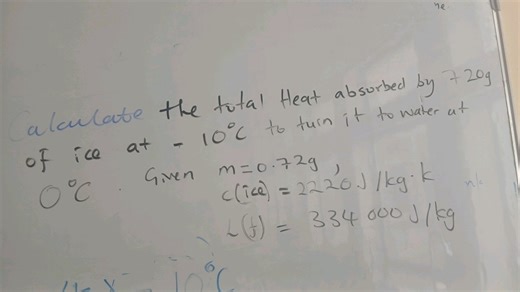 Calculate the total Heat absorbed by 720g
of ice at - 10°C to turn it to water at
0°C. Given m=0.72g,
c(ice) = 2220J/kg.k
L(f) = 334000J/kg
10°C